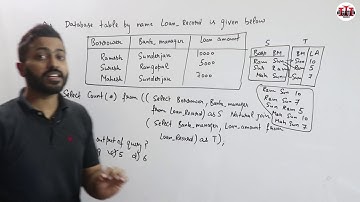 Database table by name Loan_Record is given below
Borrower Bank_manager Loan amount
Ramesh Sunderjan 10000
Suresh Ramgopal 5000
Mahesh Sunderjan 7000
S T
BM BM LA
Ram Sun Sun 10
Sur Ram Ram 5
Mah Sun Sun 7
Ram Sun 10
Ram Sun 7
Sur Ram 5
Mah Sun 10
Mah Sun 7
Select Count (*) from ((Select Borrower, Bank_manager
from Loan_Record) as S Natural join
(Select Bank_manager, Loan_amount from
Loan_Record) as T);
output of query ?
5 d) 6